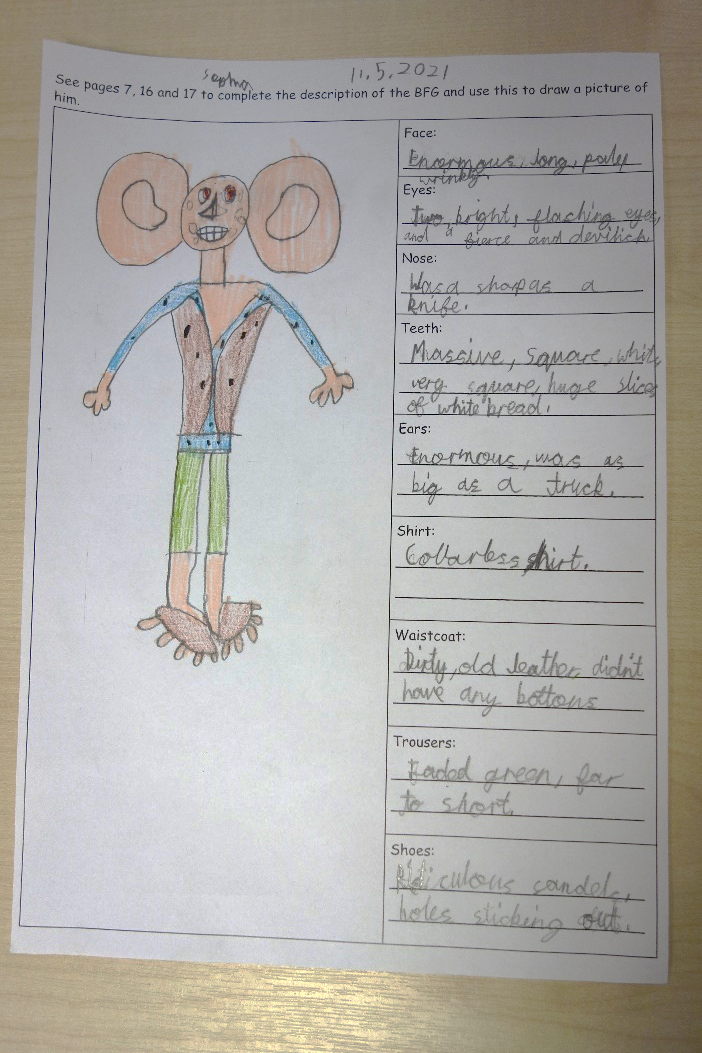 Sophia 11.5.2021
See pages 7, 16 and 17 to complete the description of the BFG and use this to draw a picture of
him.
Face:
Enormous, long, paly
wrinkly.
Eyes:
two, bright, flaching eyes,
and a fierce and devilich
Nose:
Was a sharp as a
knife.
Teeth:
Massive, square, white
very square, huge slices
of white bread.
Ears:
Enormous, was as
big as a truck.
Shirt:
Collarless shirt.
Waistcoat:
Dirty, old leather didn't
have any bottons
Trousers:
Faded green, far
to short.
Shoes:
Ridiculous sandels,
holes sticking out.